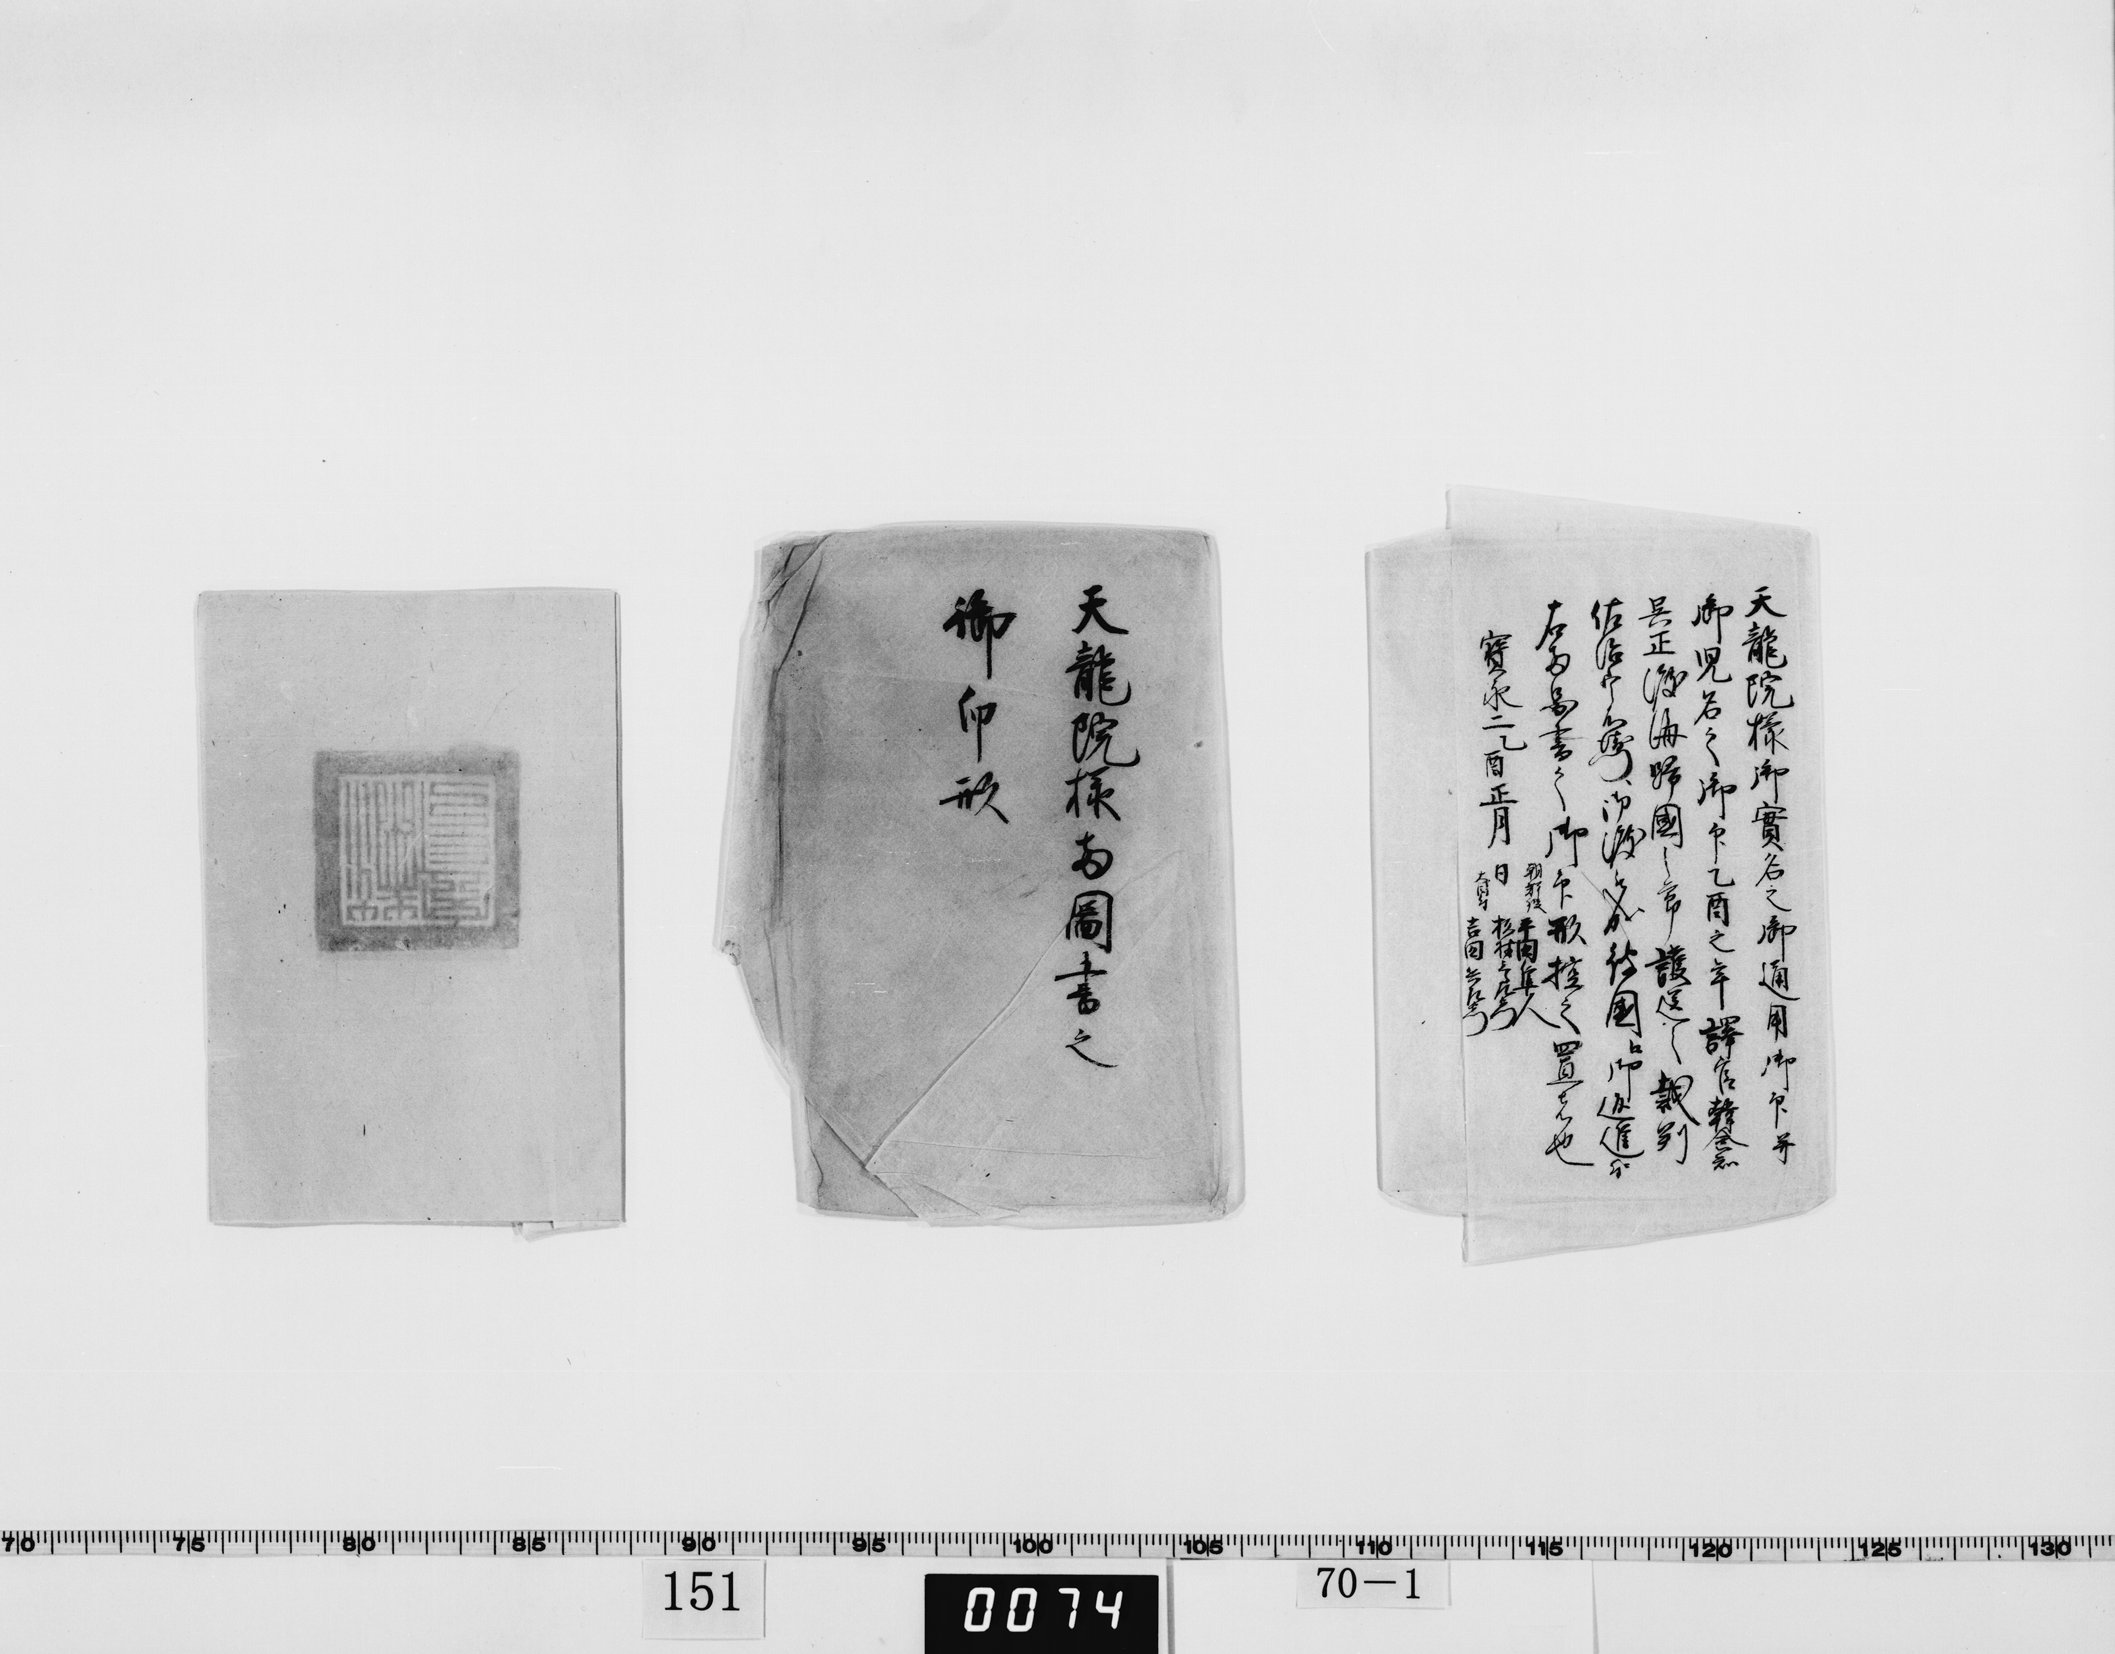 天龍院様御實名之御通用御印并
御児名之御印乙酉之年譯官韓僉知
呉正渡海帰國之節護送之裁判
佐治 御渡 従國 御返進
右両圖書之御印形控之置者也
寶永二乙酉正月日
朝鮮役 平田隼人
杉村三郎左衛門
大目付 吉田兵左衛門
天龍院様両圖書之
御印形
70 75 80 85 90 95 100 105 110 115 120 125 130
151
0074
70-1